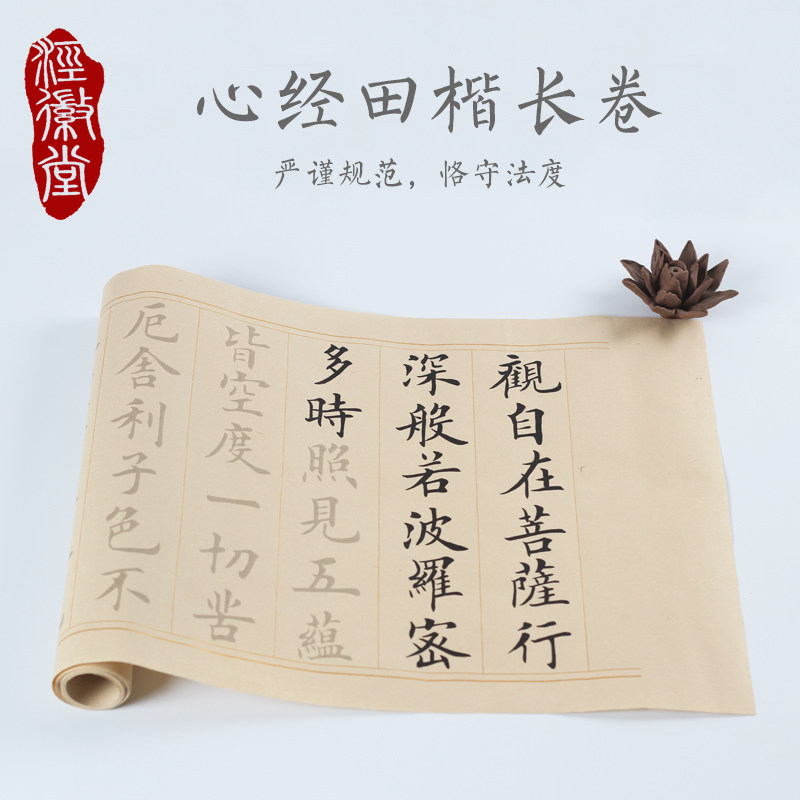 涇徽堂
心经田楷长卷
严谨规范，恪守法度
觀自在菩薩行
深般若波羅密
多時照見五蘊
皆空度一切苦
厄舍利子色不